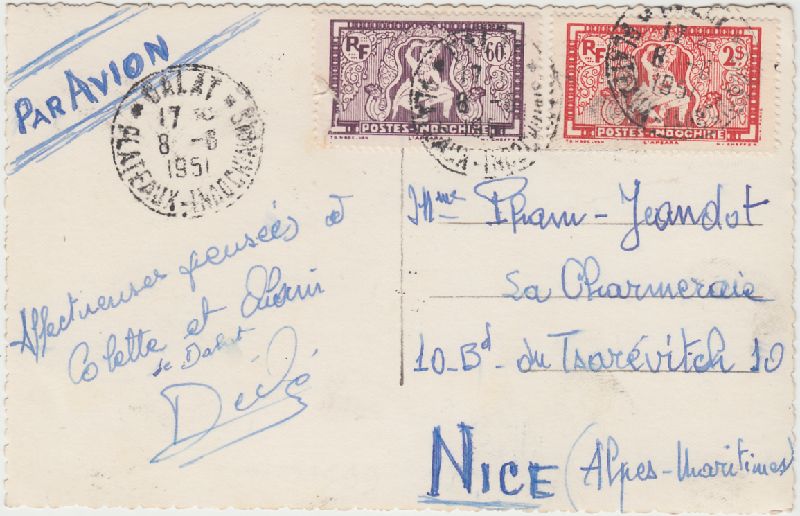 PAR AVION
DALAT
17
8 - 8
1951
PLATEAUX-INDOCHINOIS
RF
60¢
POSTES INDOCHINE
L'APSARA
RF
2$
POSTES INDOCHINE
L'APSARA
Affectueuses pensées à
Colette et
de Dalat
Dédé
Mme Pham-Jeandot
La Charmeraie
10-Bd-du Tsarévitch 10
NICE (Alpes-Maritimes)